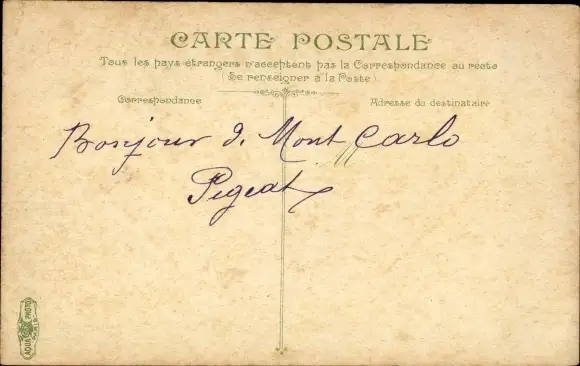 CARTE POSTALE
Tous les pays étrangers n'acceptent pas la Correspondance au recto
(Se renseigner à la Poste)
Correspondance
Adresse du destinataire
Bonjour d. Mont Carlo
Pigeat
AQUA PHOTO
PARIS